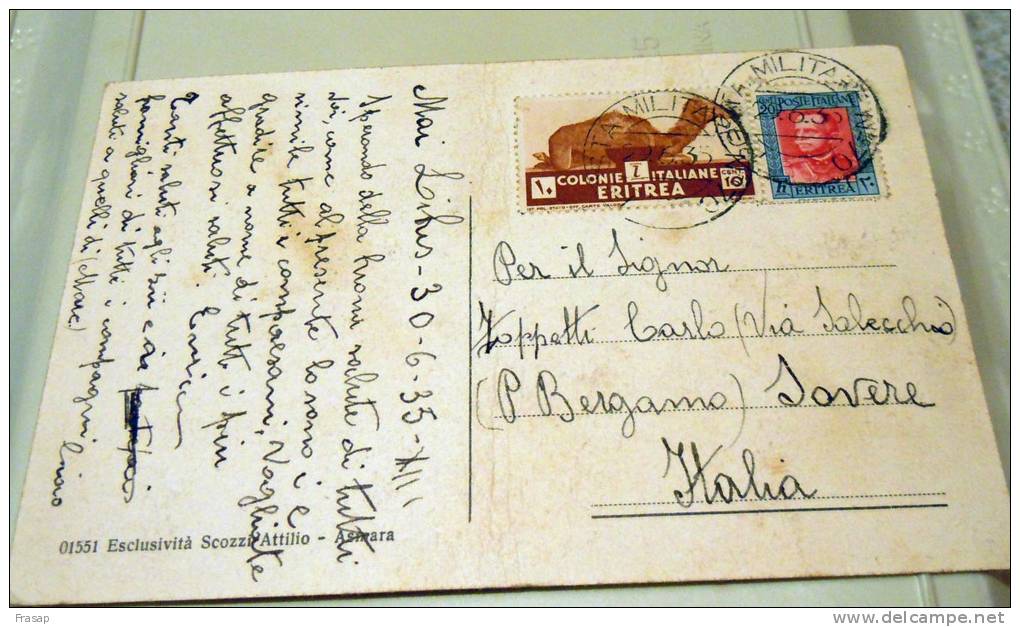 Mai Lihus - 30-6-35-XIII
Sperando della buona salute di tutti
voi, come al presente lo sono io e
simile tutti i compaesani, Vogliate
gradire a nome di tutti i più
affettuosi saluti. Enrico
Tanti saluti agli zii e ai
famigliari di tutti i compagni
saluti a quelli di (Marc) ciao
01551 Esclusività Scozzi Attilio - Asmara
COLONIE ITALIANE
10 CENT
ERITREA
POSTE ITALIANE
20
ERITREA
POSTA MILITARE
Per il Signor
Zoppetti Carlo (Via Salecchio)
(P Bergamo) Sovere
Italia
Frasap
www.delcampe.net